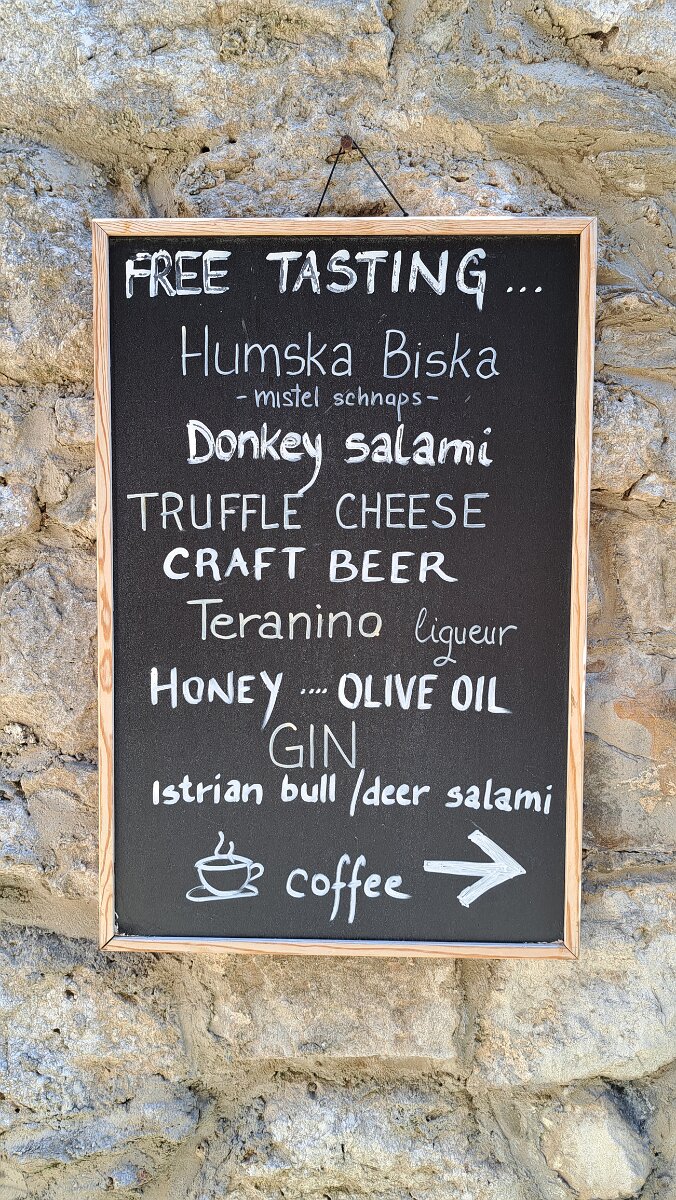 FREE TASTING...
Humska Biska
- mistel schnaps -
Donkey salami
TRUFFLE CHEESE
CRAFT BEER
Teranino liqueur
HONEY .... OLIVE OIL
GIN
Istrian bull /deer salami
coffee